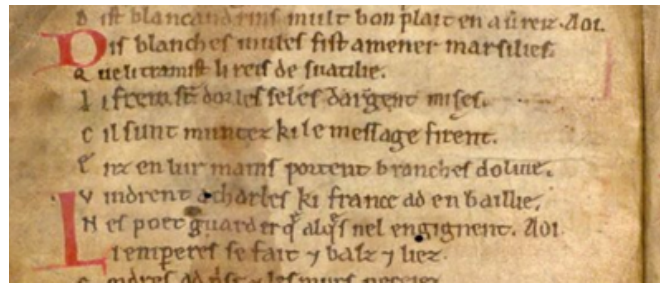 D ist blancandrins mult bon plait en aũreiz. Aoi.
Dis blanches mules fist amener marsilies.
Q ue li tramist li reis de suatilie.
L i frein sũt dor les seles dargent mises.
C il sunt muntez ki le message firent.
E nz en lur mains portent branches dolive.
V indrent a charles ki france ad en baillie.
N es poet guarder q̃ alq̃s nel engignent. Aoi.
Li empereres se fait ⁊ balz ⁊ liez.
C ordres ad prise ⁊ les murs peceiez